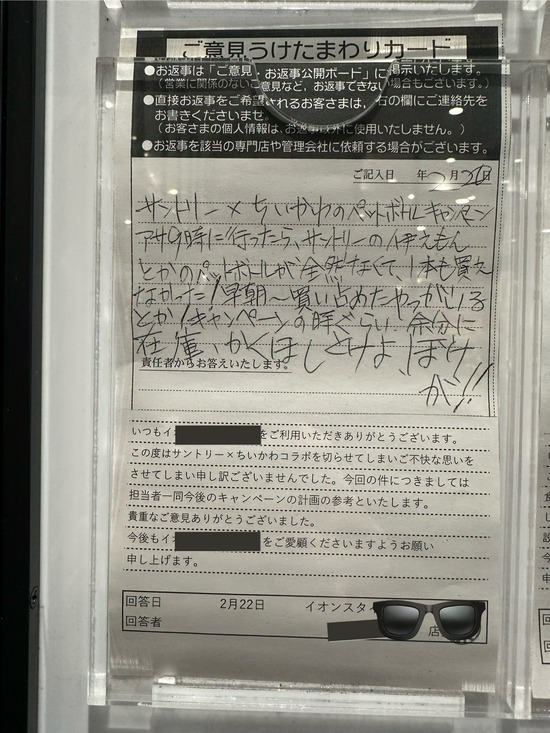 ご意見うけたまわりカード
●お返事は「ご意見・お返事公開ボード」に掲示いたします。
(営業に関係のないご意見など、お返事できない場合もございます。)
●直接お返事をご希望されるお客さまは、右の欄にご連絡先を
お書きくださいませ。
(お客さまの個人情報は、お返事以外に使用いたしません。)
●お返事を該当の専門店や管理会社に依頼する場合がございます。
ご記入日 年2月20日
サントリー×ちいかわのペットボトルキャンペーン
アサ9時に行ったら、サントリーの伊えもん
とかのペットボトルが全然なくて、1本も買え
なかった!早朝〜買い占めたやつがいる
とか!キャンペーンの時ぐらい余分に
在庫、かくほしとけよ、ぼけ
が!!
責任者からお答えいたします。
いつもイ をご利用いただきありがとうございます。
この度はサントリー×ちいかわコラボを切らせてしまいご不快な思いを
させてしまい申し訳ございませんでした。今回の件につきましては
担当者一同今後のキャンペーンの計画の参考といたします。
貴重なご意見ありがとうございました。
今後もイ をご愛顧くださいますようお願い
申し上げます。
回答日 2月22日 イオンスタイ
回答者 店